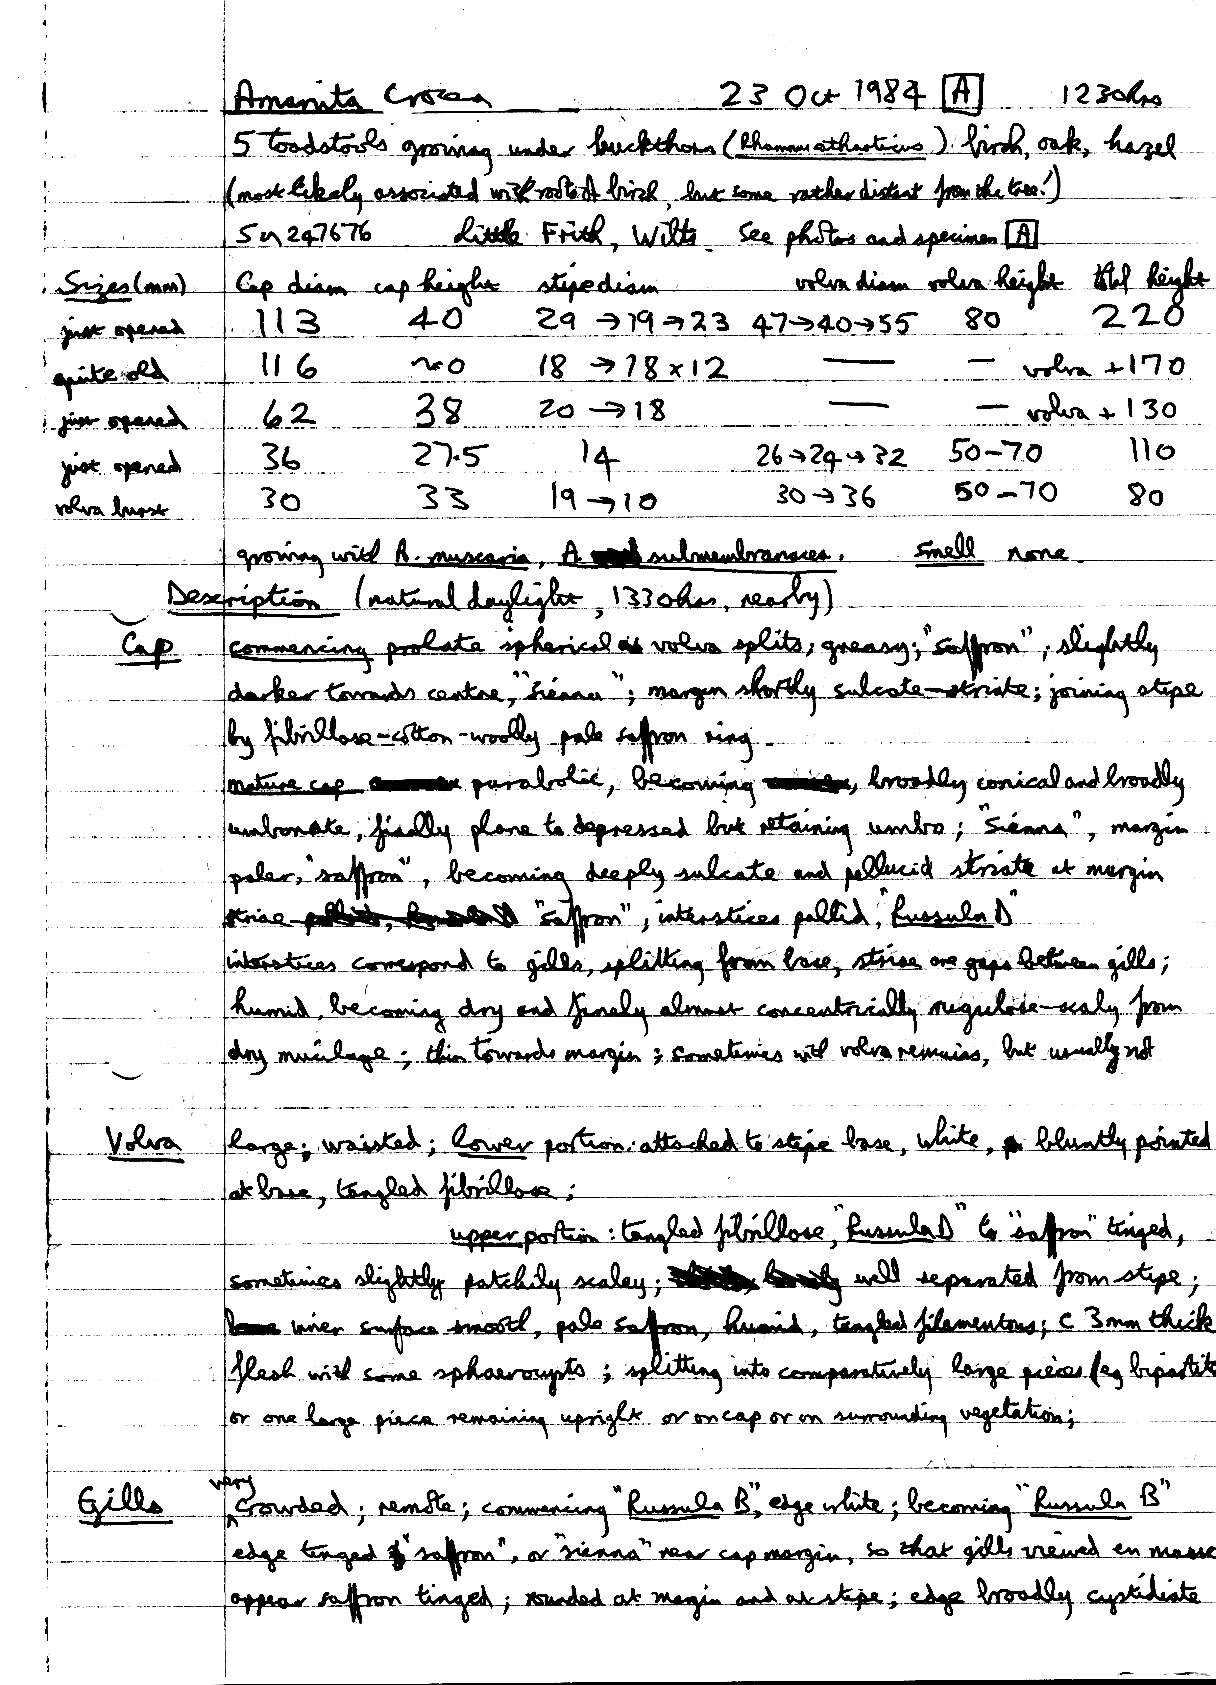 Amanita Crocea 23 Oct 1984 [A] 1230hrs
5 toadstools growing under buckthorn (Rhamnus cathartica) birch, oak, hazel
(most likely associated with roots of birch, but some rather distant from the tree!)
SU 247676 Little Frith, Wilts. See photos and specimen [A]
Sizes (mm) Cap diam cap height stipe diam volva diam volva height total height
just opened 113 40 29 → 19 → 23 47→40→55 80 220
quite old 116 ~0 18 → 18 x 12 — — volva + 170
just opened 62 38 20 → 18 — — volva + 130
just opened 36 27.5 14 26→24→32 50-70 110
volva burst 30 33 19 → 10 30→36 50-70 80
growing with A. muscaria, A submembranacea. Smell none.
Description (natural daylight, 1330hrs, nearby)
Cap commencing prolate spherical as volva splits; greasy; "saffron", slightly
darker towards centre, "Sienna"; margin shortly sulcate-striate; joining stipe
by fibrillose-cotton-woolly pale saffron ring.
mature cap parabolic, becoming , broadly conical and broadly
umbonate, finally plane to depressed but retaining umbo; "Sienna", margin
paler, "saffron", becoming deeply sulcate and pellucid striate at margin
striae "saffron", interstices pallid, "Russula D"
interstices correspond to gills, splitting from base, striae are gaps between gills;
humid, becoming dry and finely almost concentrically rugulose-scaly from
dry mucilage; thin towards margin; sometimes with volva remains, but usually not
Volva large; waisted; lower portion: attached to stipe base, white, bluntly pointed
at base, tangled fibrillose;
upper portion: tangled fibrillose, "Russula D" to "saffron" tinged,
sometimes slightly patchily scaley; well separated from stipe;
inner surface smooth, pale saffron, humid, tangled filamentous; c 3mm thick
flesh with some sphaerocysts; splitting into comparatively large pieces (eg bipartite
or one large piece remaining upright or on cap or on surrounding vegetation;
Gills very crowded; remote; commencing "Russula B", edge white; becoming "Russula B"
edge tinged "saffron", or "sienna" near cap margin, so that gills viewed en masse
appear saffron tinged; rounded at margin and at stipe; edge broadly cystidiate